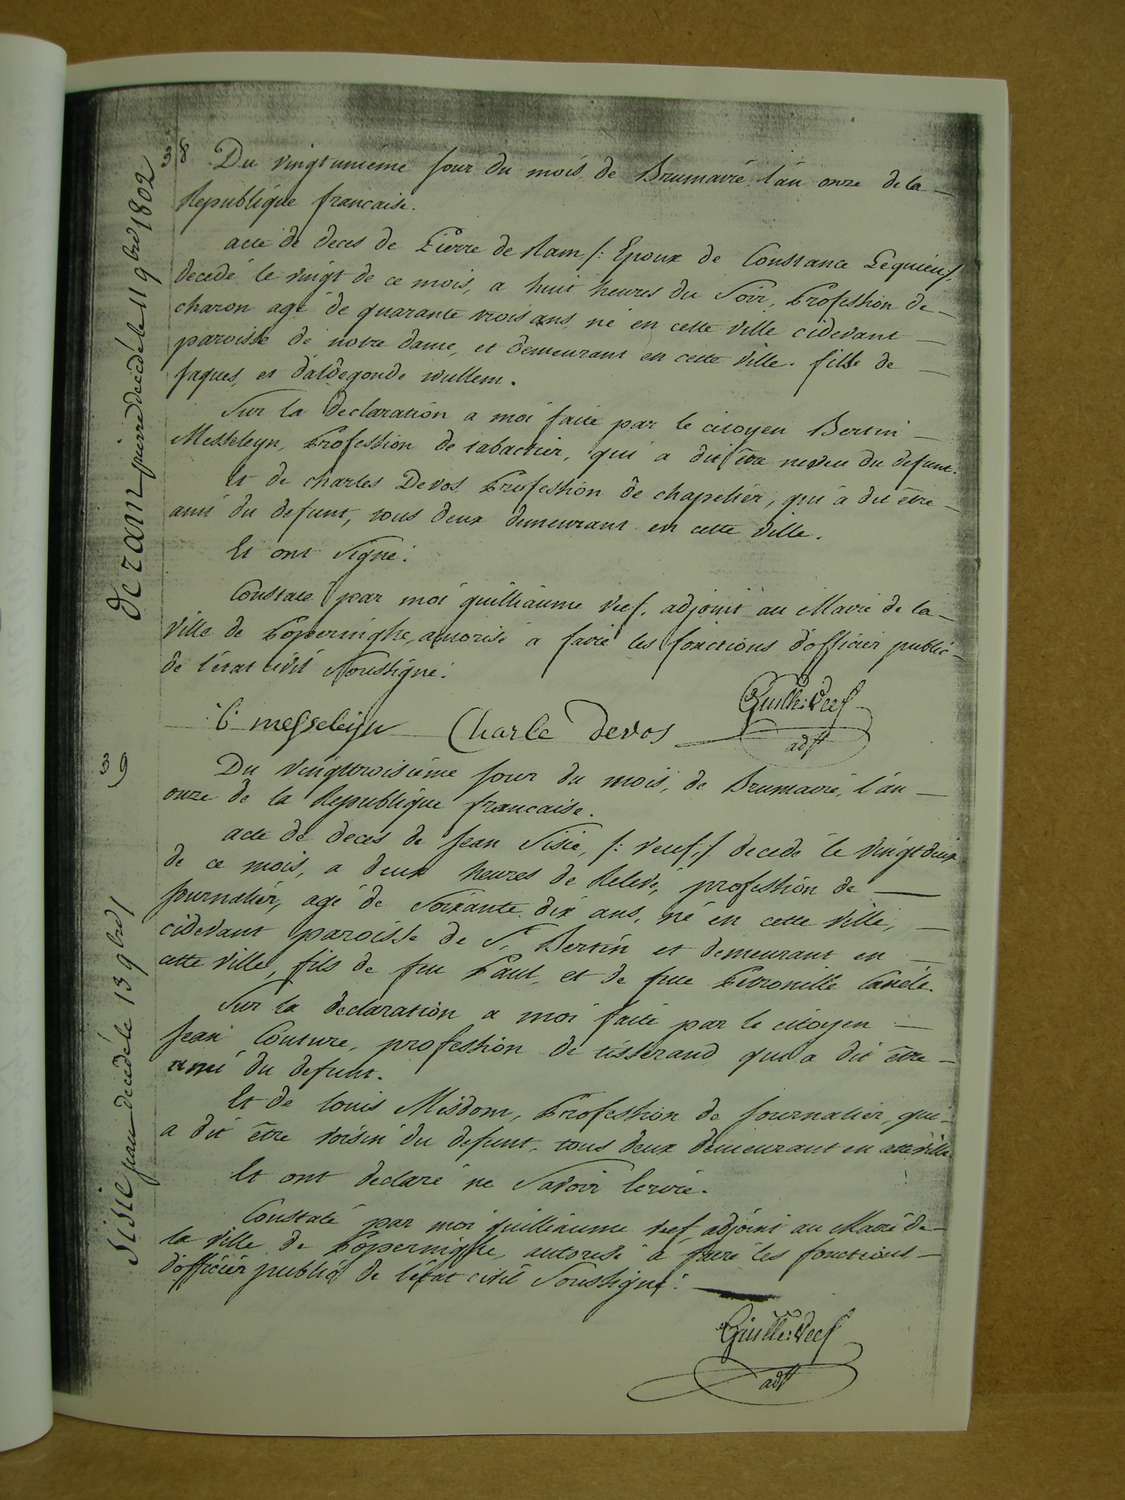 38
de ram pierre decedé le 11 9bre 1802
Du vingtunieme Jour du mois de Brumaire l'an onze de la
Republique francaise.
acte de deces de Pierre de Ram /: Epoux de Constance Lequieu /
decedé le vingt de ce mois, a huit heures du Soir, Profession de
charon agé de quarante trois ans né en cette ville cidevant
paroisse de notre dame, et demeurant en cette ville. fils de
Jaques, et d'aldegonde wullem.
Sur la declaration a moi faite par le citoyen Bertin
Messeleyn, Profession de tabactier, qui a dit être neveu du defunt.
Et de charles Devos Profession de chapelier, qui a dit être
ami du defunt, tous deux demeurant en cette ville.
Et ont Signé.
Constaté par moi guilliaume Veef, adjoint au Maire de la
Ville de Poperinghe, autorisé a faire les fonctions d'officier public
de l'état civil Soussigné.
B messeleyn Charle Devos Guille: Veef
adjt
39
Sisie jean decedé le 13 9bre /
Du vingttroisieme Jour du mois, de Brumaire, l'an
onze de la Republique francaise.
acte de deces de Jean Sisie, /: veuf :/ decedé le vingtdeux
de ce mois, a deux heures de Relevé, profession de
Journalier, agé de Soixante dix ans, né en cette ville,
cidevant paroisse de St. Bertin et demeurant en
cette ville, fils de feu Paul, et de feue Petronille Canele.
Sur la declaration a moi faite par le citoyen
Jean Couture, profession de tisserand qui a dit être
ami du defunt.
Et de Louis Misdom, Profession de Journalier, qui
a dit être voisin du defunt, tous deux demeurant en cette ville
Et ont declaré ne Savoir Ecrire.
Constaté par moi guilliaume veef, adjoint au Maire de
la ville de Poperinghe autorisé a faire les fonctions
d'officier public de l'état civil Soussigné.
Guille: Veef
adjt